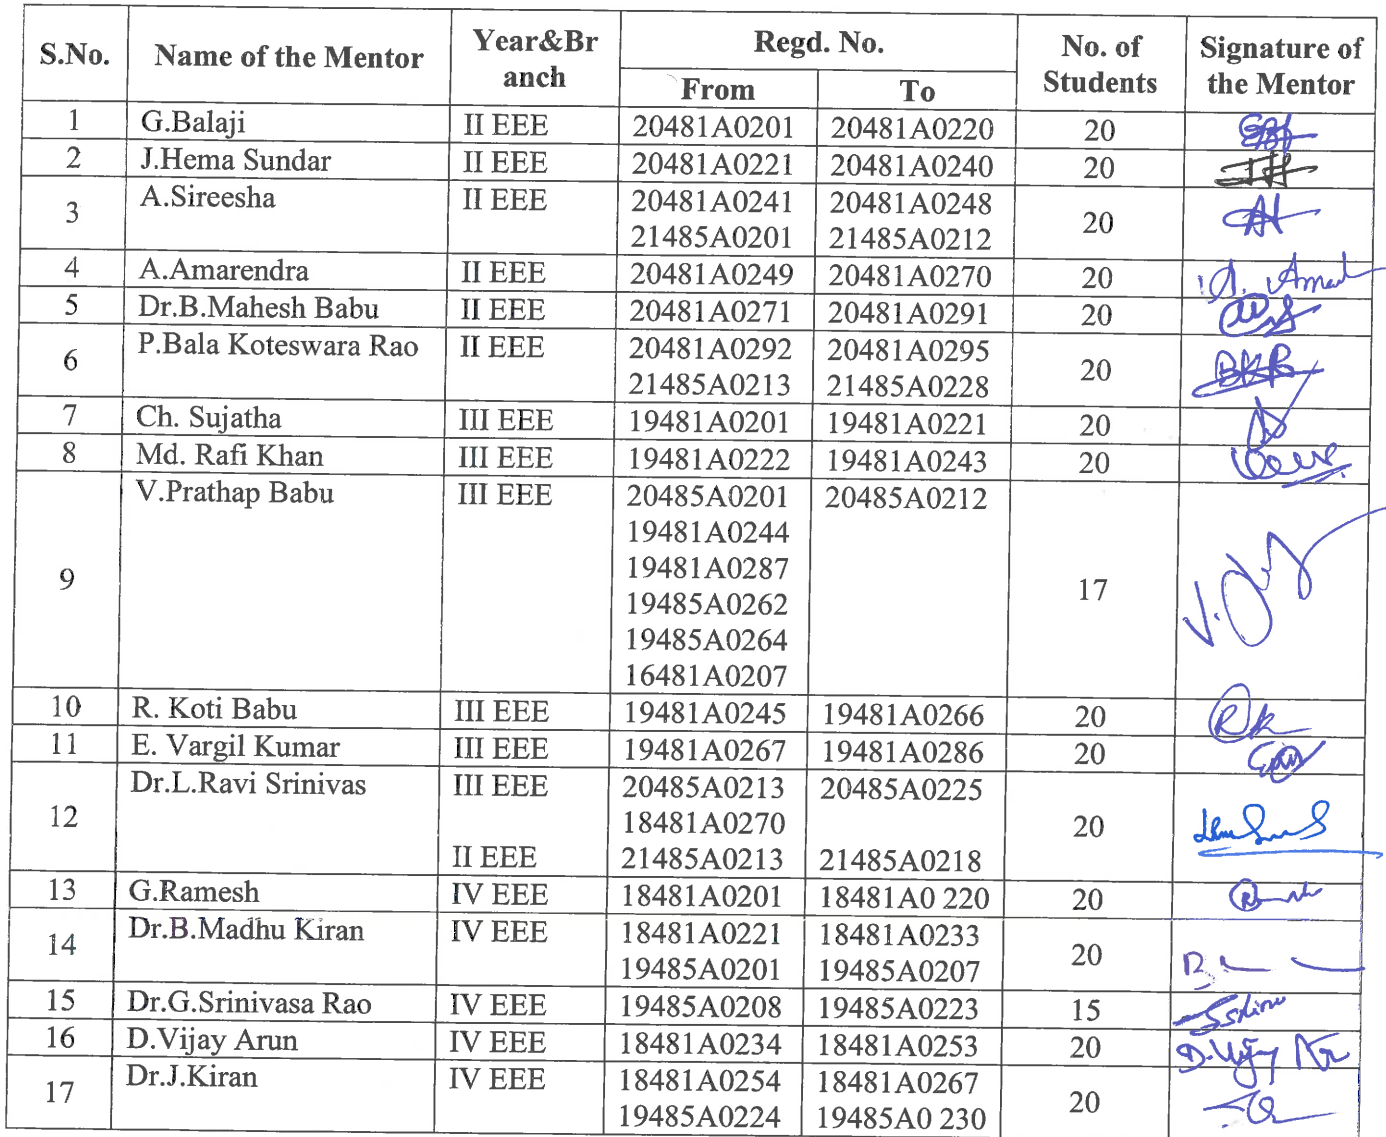 S.No. Name of the Mentor Year&Br anch Regd. No. No. of Students Signature of the Mentor
From To
1 G.Balaji II EEE 20481A0201 20481A0220 20
2 J.Hema Sundar II EEE 20481A0221 20481A0240 20
3 A.Sireesha II EEE 20481A0241 20481A0248 20
21485A0201 21485A0212
4 A.Amarendra II EEE 20481A0249 20481A0270 20
5 Dr.B.Mahesh Babu II EEE 20481A0271 20481A0291 20
6 P.Bala Koteswara Rao II EEE 20481A0292 20481A0295 20 BKR
21485A0213 21485A0228
7 Ch. Sujatha III EEE 19481A0201 19481A0221 20
8 Md. Rafi Khan III EEE 19481A0222 19481A0243 20
9 V.Prathap Babu III EEE 20485A0201 20485A0212 17
19481A0244
19481A0287
19485A0262
19485A0264
16481A0207
10 R. Koti Babu III EEE 19481A0245 19481A0266 20
11 E. Vargil Kumar III EEE 19481A0267 19481A0286 20
12 Dr.L.Ravi Srinivas III EEE 20485A0213 20485A0225 20
18481A0270
II EEE 21485A0213 21485A0218
13 G.Ramesh IV EEE 18481A0201 18481A0 220 20
14 Dr.B.Madhu Kiran IV EEE 18481A0221 18481A0233 20
19485A0201 19485A0207
15 Dr.G.Srinivasa Rao IV EEE 19485A0208 19485A0223 15
16 D.Vijay Arun IV EEE 18481A0234 18481A0253 20
17 Dr.J.Kiran IV EEE 18481A0254 18481A0267 20
19485A0224 19485A0 230